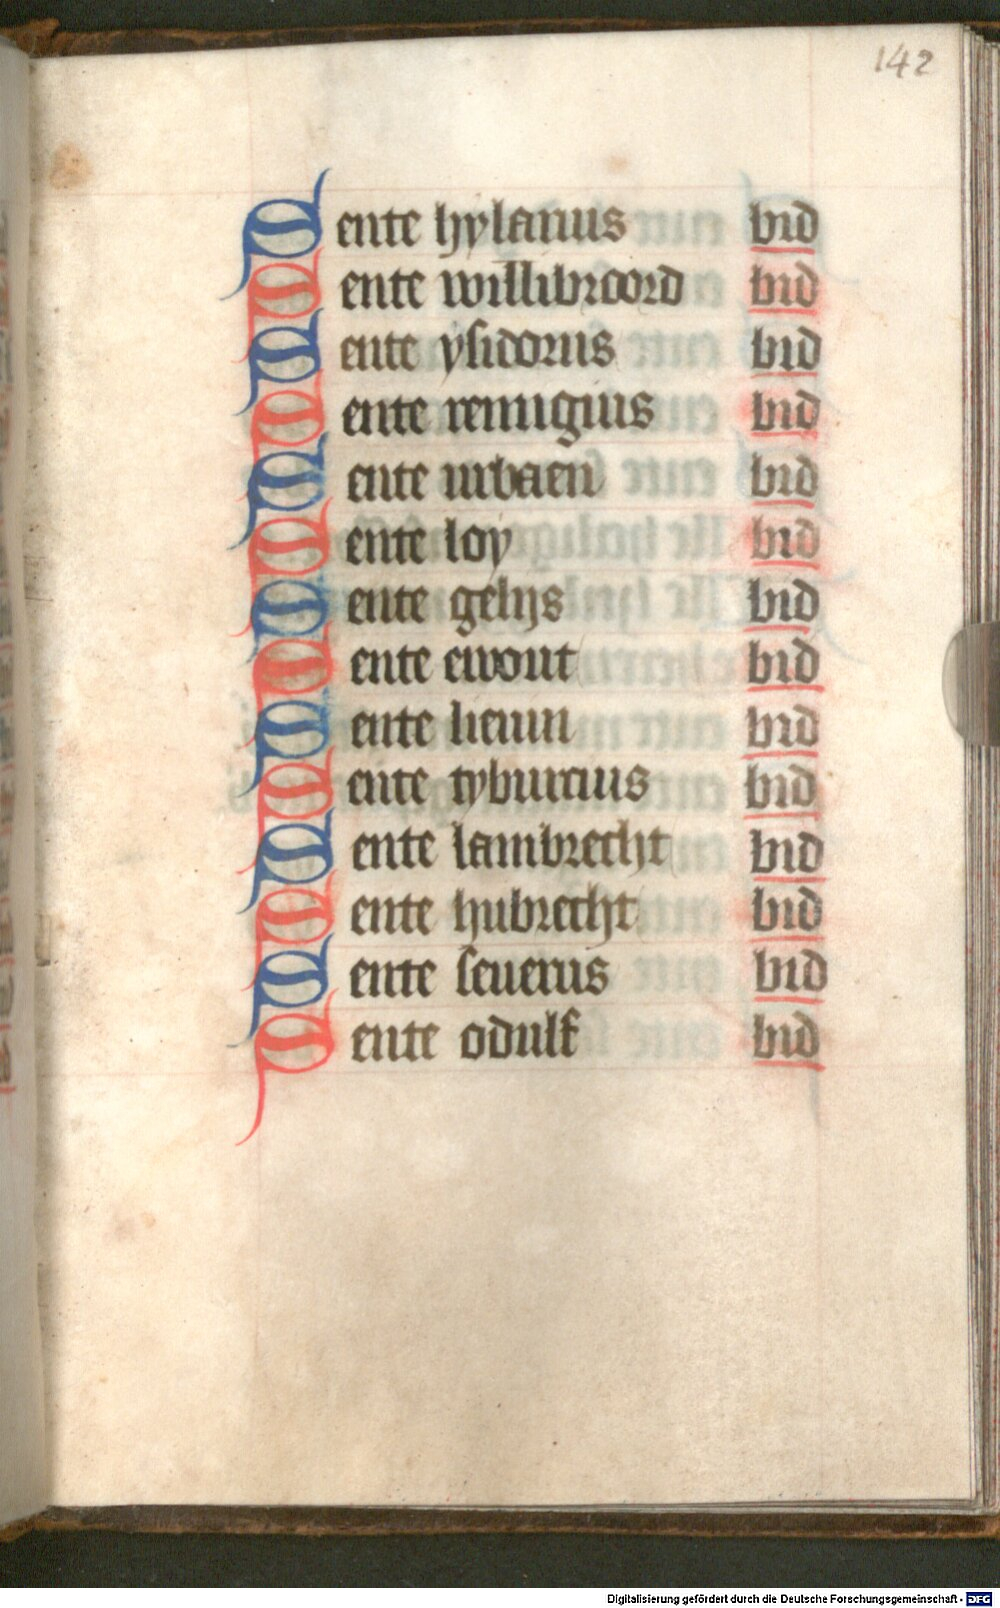 142
Sente hylarius bid
Sente willibroord bid
Sente ysidorus bid
Sente remigius bid
Sente urbaen bid
Sente loy bid
Sente gelijs bid
Sente ewout bid
Sente lieuin bid
Sente tyburcius bid
Sente lambrecht bid
Sente hubrecht bid
Sente seuerus bid
Sente odulf bid
Digitalisierung gefördert durch die Deutsche Forschungsgemeinschaft - DFG